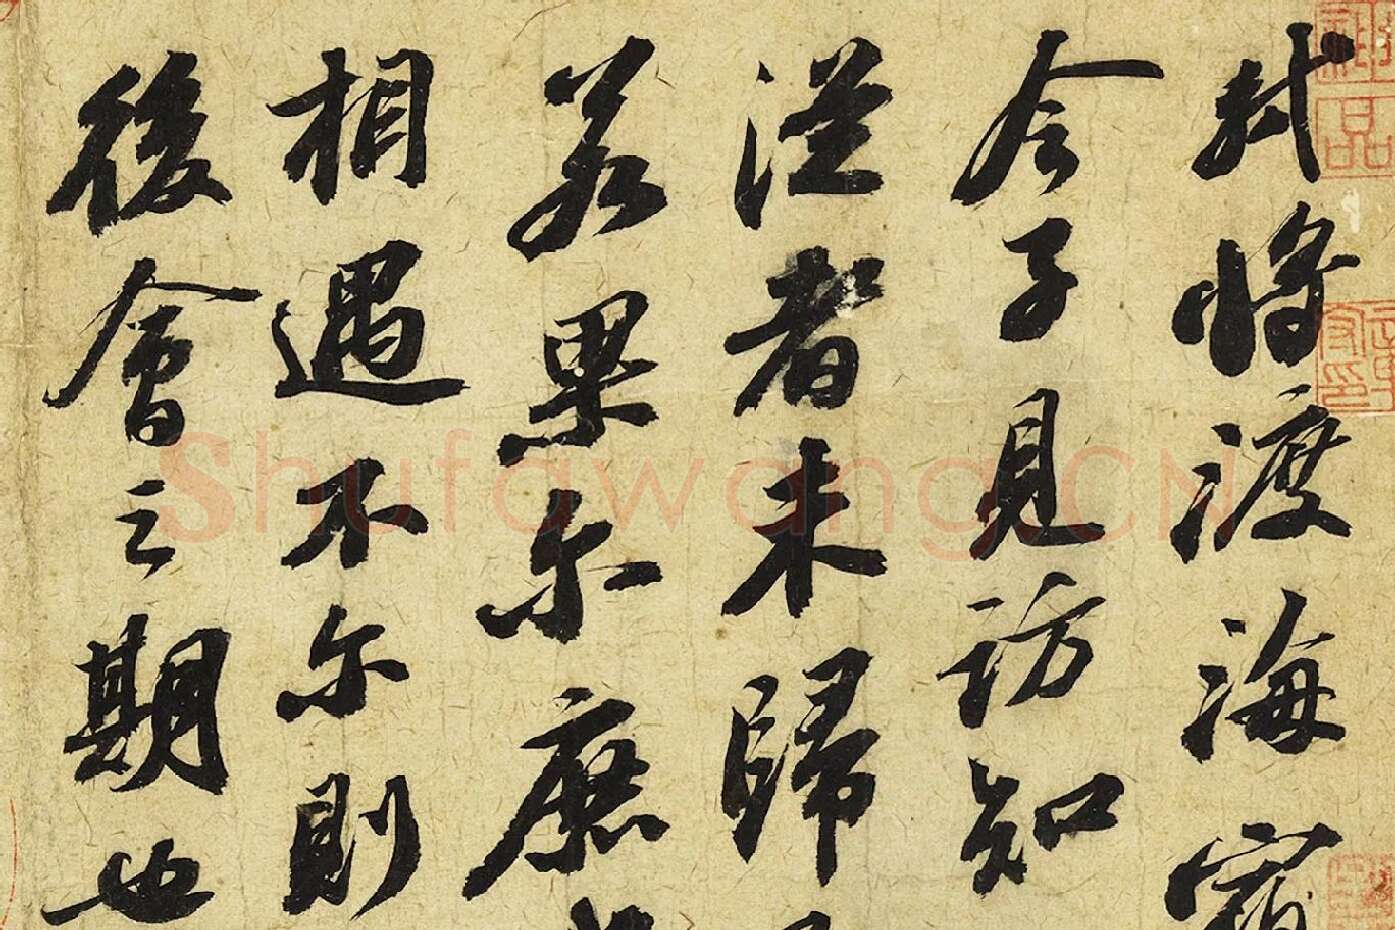 神品
軾將渡海宿
令子見訪知
從者未歸
若果尔庶
相遇不尔則
後會之期也
Shufawang.CN